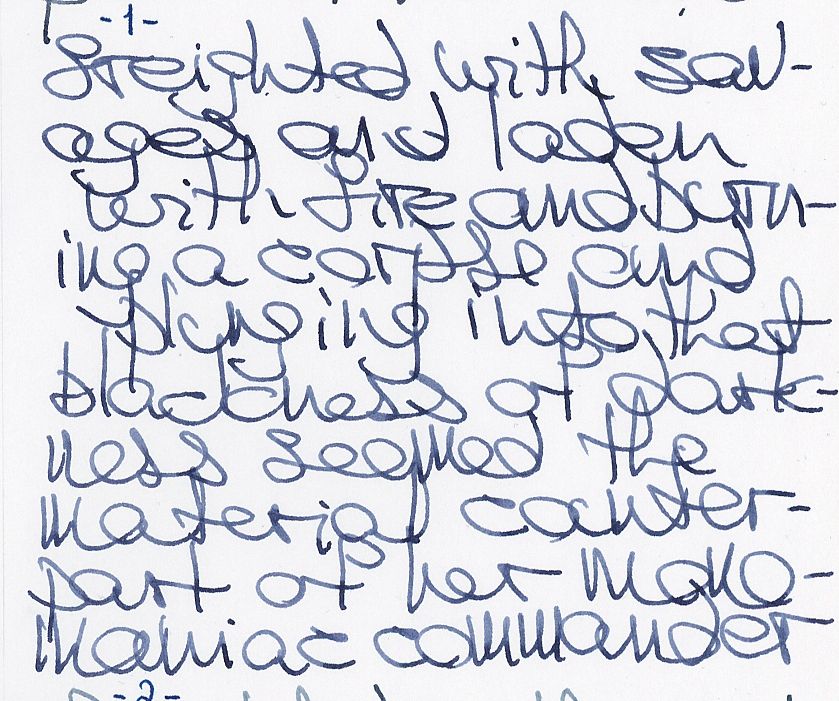 -1-
freighted with sav-
ages and laden
with fire and burn-
ing a corpse and
plunging into that
blackness of dark-
ness seemed the
material counter-
part of her mono-
maniac commander
-2-